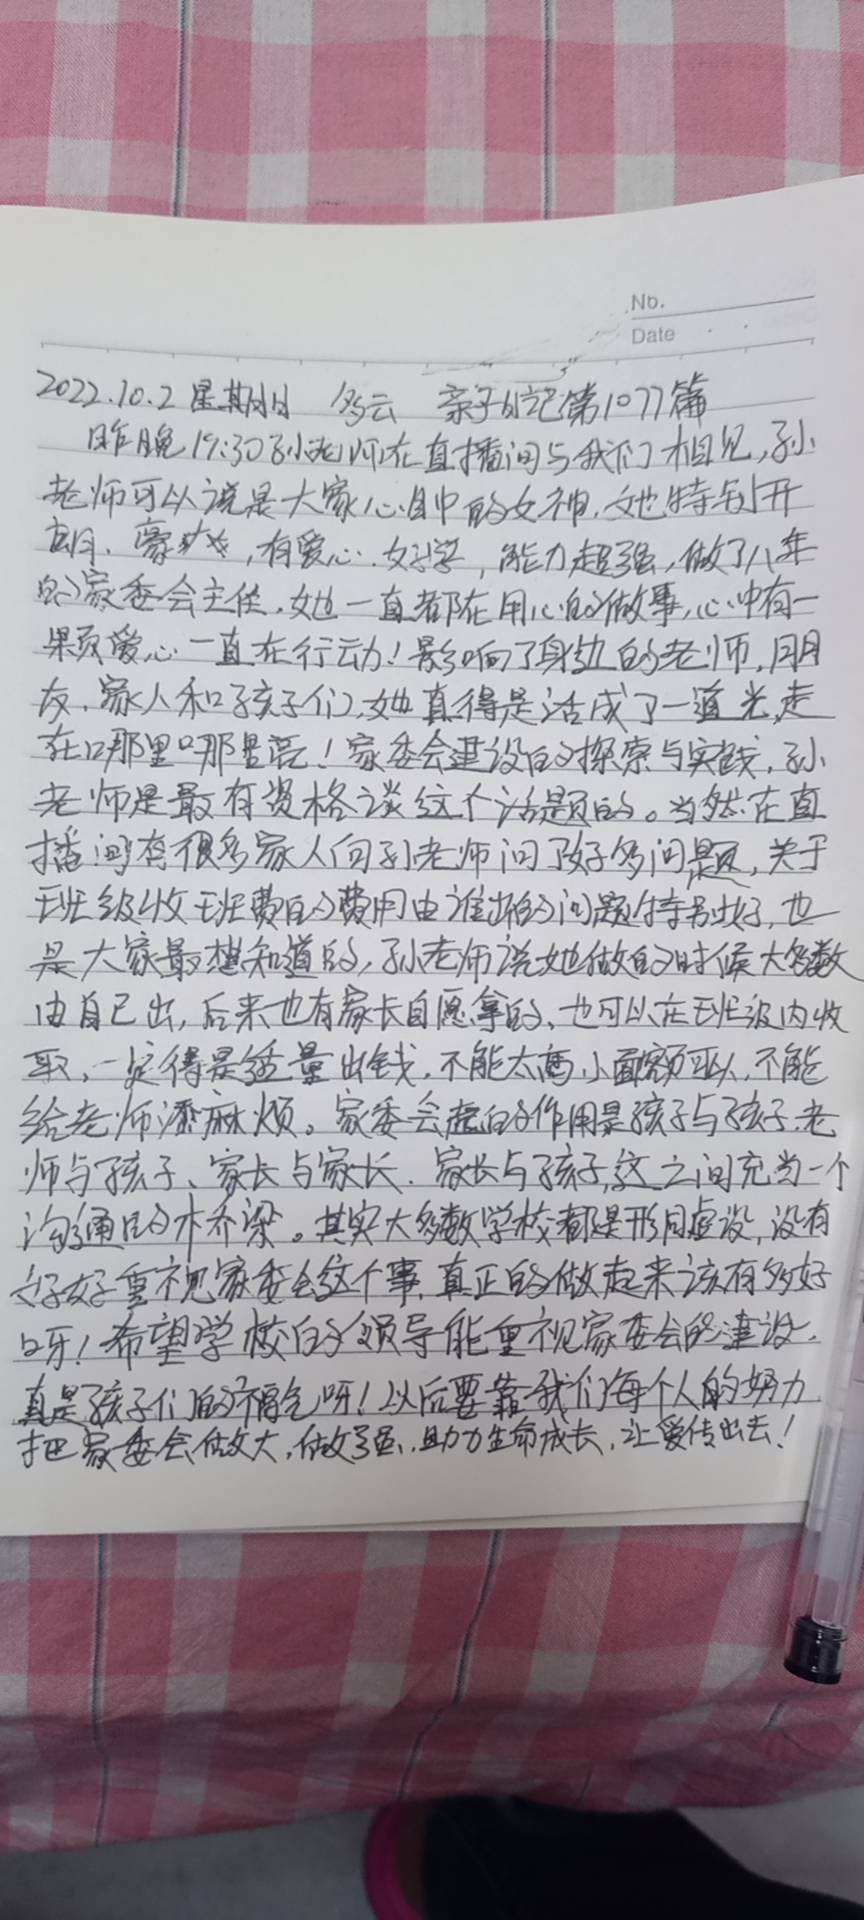 No.
Date
2022.10.2 星期日 多云 亲子日记第1077篇
昨晚19:30孙老师在直播间与我们相见,孙
老师可以说是大家心目中的女神.她特别开
朗.豪爽,有爱心.好学,能力超强,做了八年
的家委会主任.她一直都在用心的做事,心中有一
颗爱心一直在行动!影响了身边的老师.朋
友.家人和孩子们,她真得是活成了一道光,走
在哪里哪里亮!家委会建设的探索与实践,孙
老师是最有资格谈这个话题的。当然在直
播间有很多家人向孙老师问了好多问题,关于
班级收班费的费用由谁出的问题特别好,也
是大家最想知道的,孙老师说她做的时候大多数
由自己出,后来也有家长自愿拿的、也可以在班级内收
取、一定得是适量出钱.不能太高,小面额可以,不能
给老师添麻烦。家委会起的作用是孩子与孩子.老
师与孩子、家长与家长.家长与孩子,这之间充当一个
沟通的桥梁。其实大多数学校都是形同虚设,没有
好好重视家委会这个事.真正的做起来该有多好
呀!希望学校的领导能重视家委会的建设.
真是孩子们的福气呀!以后要靠我们每个人的努力
把家委会做大,做强,助力生命成长,让爱传出去!